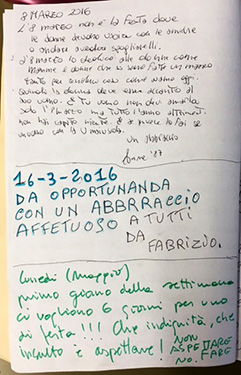 8 MARZO 2016
L'8 marzo non è la festa dove
le donne devono uscire con le amiche
o andare a vedere spogliarelli.
L'8 marzo lo dedico alle donne come
mamme e donne che si sono fatte un mazzo
tanto per
Quando la donna deve essere accanto al
suo uomo. E tu uomo non devi
solo l'8 marzo ma tutti i giorni altrimenti
non hai capito niente
un abbraccio
16-3-2016
DA OPPORTUNANDA
CON UN ABBRRACCIO
AFFETUOSO A TUTTI
DA
FABRIZIO.
Lunedì (maggio)
primo giorno della settimana
ci vogliono 6 giorni per uno
di festa!!! Che indignità, che
insulto è aspettare!
NON
ASPEDARE
NO. FARE